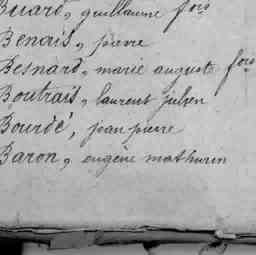 Buard, guillaume fois
Benais, pierre
Besnard, marie auguste fois
Boutrais, laurent julien
Bourdé, jean pierre
Baron, eugène mathurin